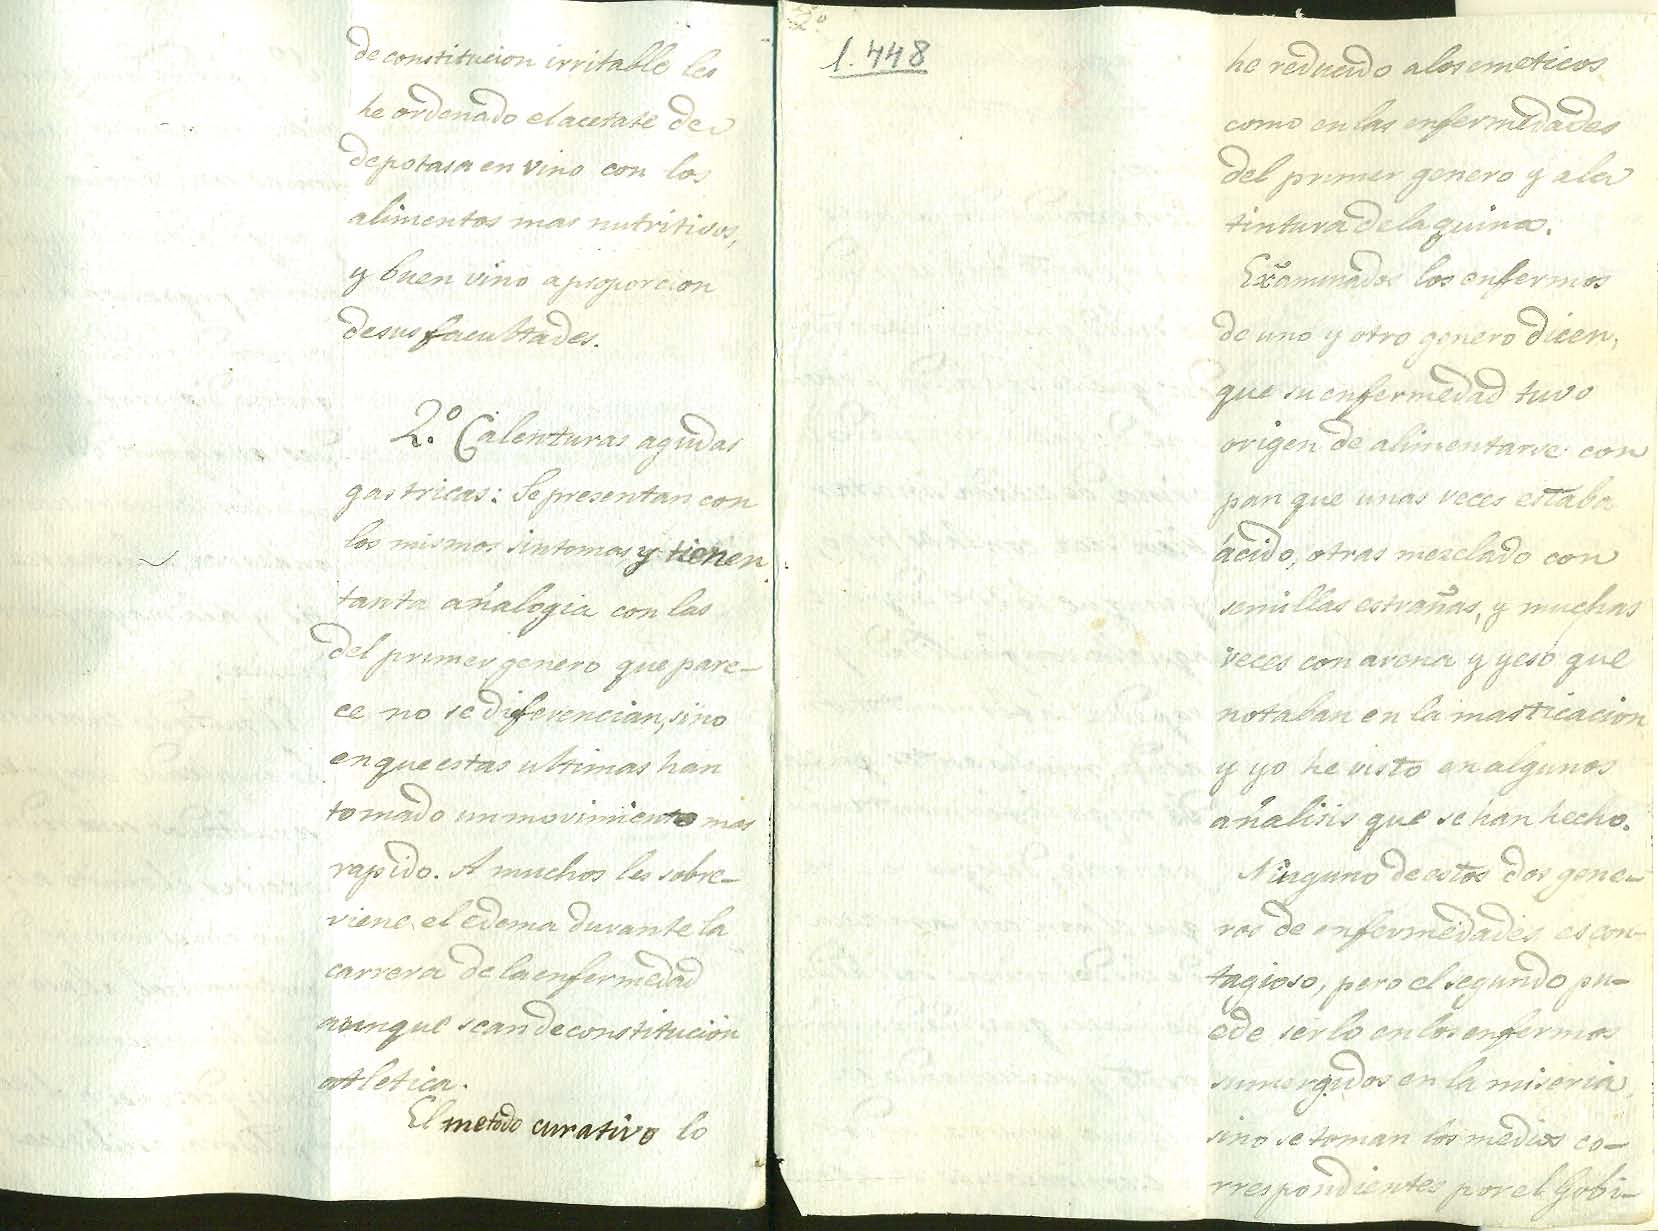 de constitucion irritable les
he ordenado el acetate de
de potasa en vino con los
alimentos mas nutritivos,
y buen vino a proporcion
de sus facultades.
2.º Calenturas agudas
gastricas: Se presentan con
los mismos sintomas y tienen
tanta análogia con las
del primer genero que pare-
ce no se diferencian, sino
en que estas ultimas han
tomado un movimiento mas
rapido. A muchos les sobre-
viene el edema durante la
carrera de la enfermedad
aunque sean de constitución
atletica.
El metodo curativo lo
1.448
he reducido a los emeticos
como en las enfermedades
del primer genero y a la
tintura de la quina.
Examinados los enfermos
de uno y otro genero dicen,
que su enfermedad tuvo
origen de alimentarse con
pan que unas veces estaba
ácido, otras mezclado con
semillas estrañas, y muchas
veces con arena y yeso que
notaban en la masticacion
y yo he visto en algunos
análisis que se han hecho.
Ninguno de estos dos gene-
ros de enfermedades es con-
tagioso, pero el segundo pu-
ede serlo en los enfermos
sumergidos en la miseria,
sino se toman los medios co-
rrespondientes por el Gobi-